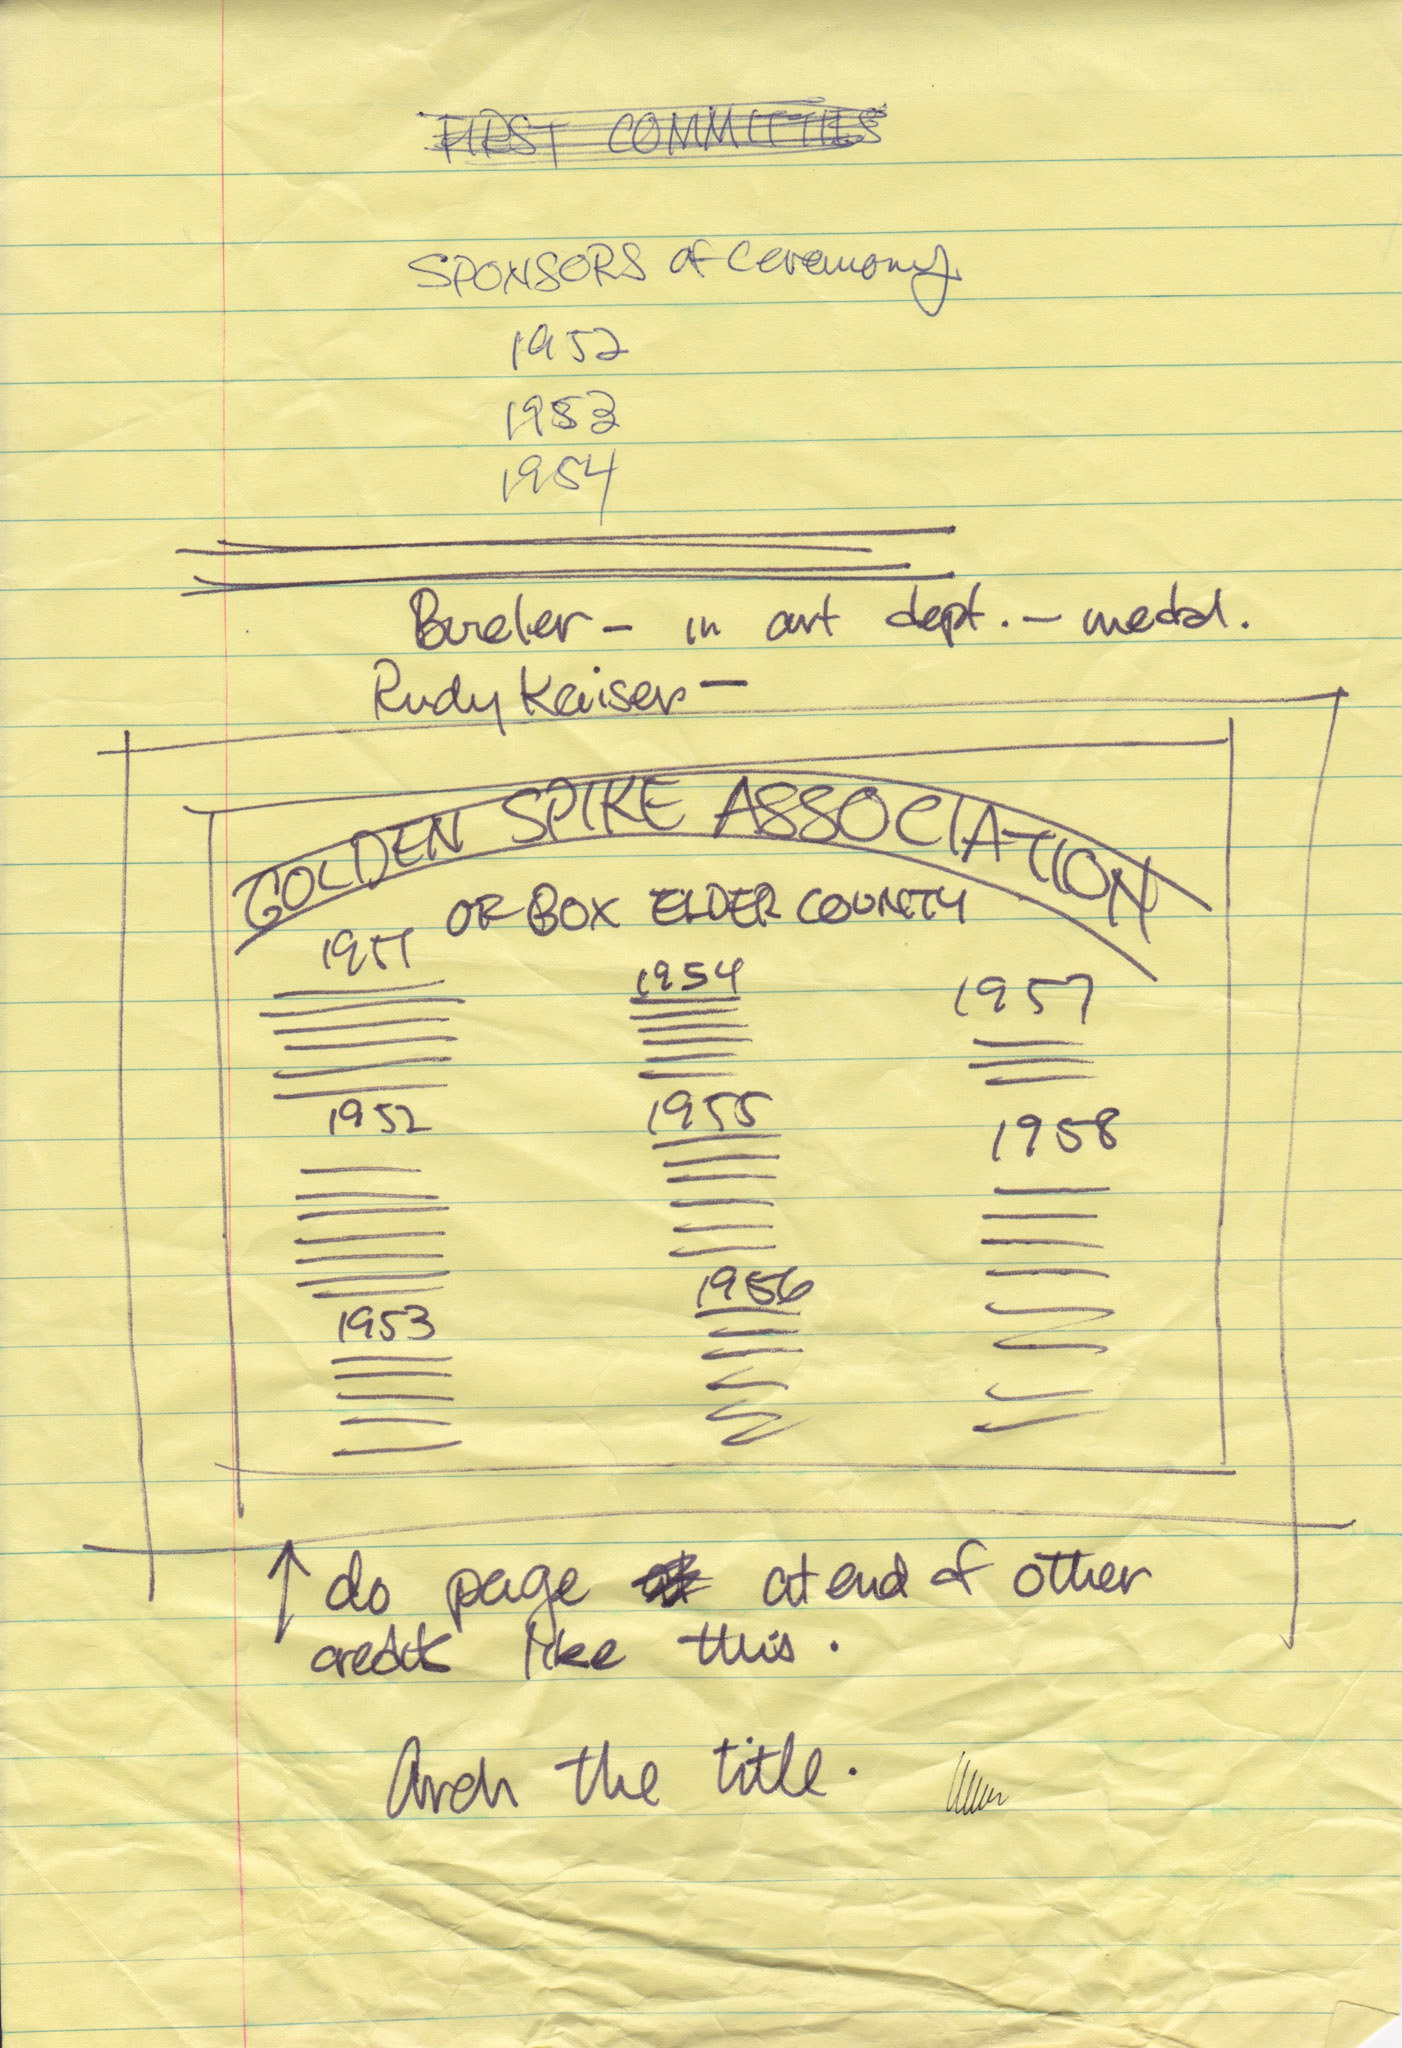 FIRST COMMITTIES
SPONSORS of Ceremony
1952
1953
1954
- in art dept. - medal.
Rudy Kaiser -
GOLDEN SPIKE ASSOCIATION
OF BOX ELDER COUNTY
1951 1954 1957
1952 1955 1958
1953 1956
do page at end of other
credits like this.
Arch the title.